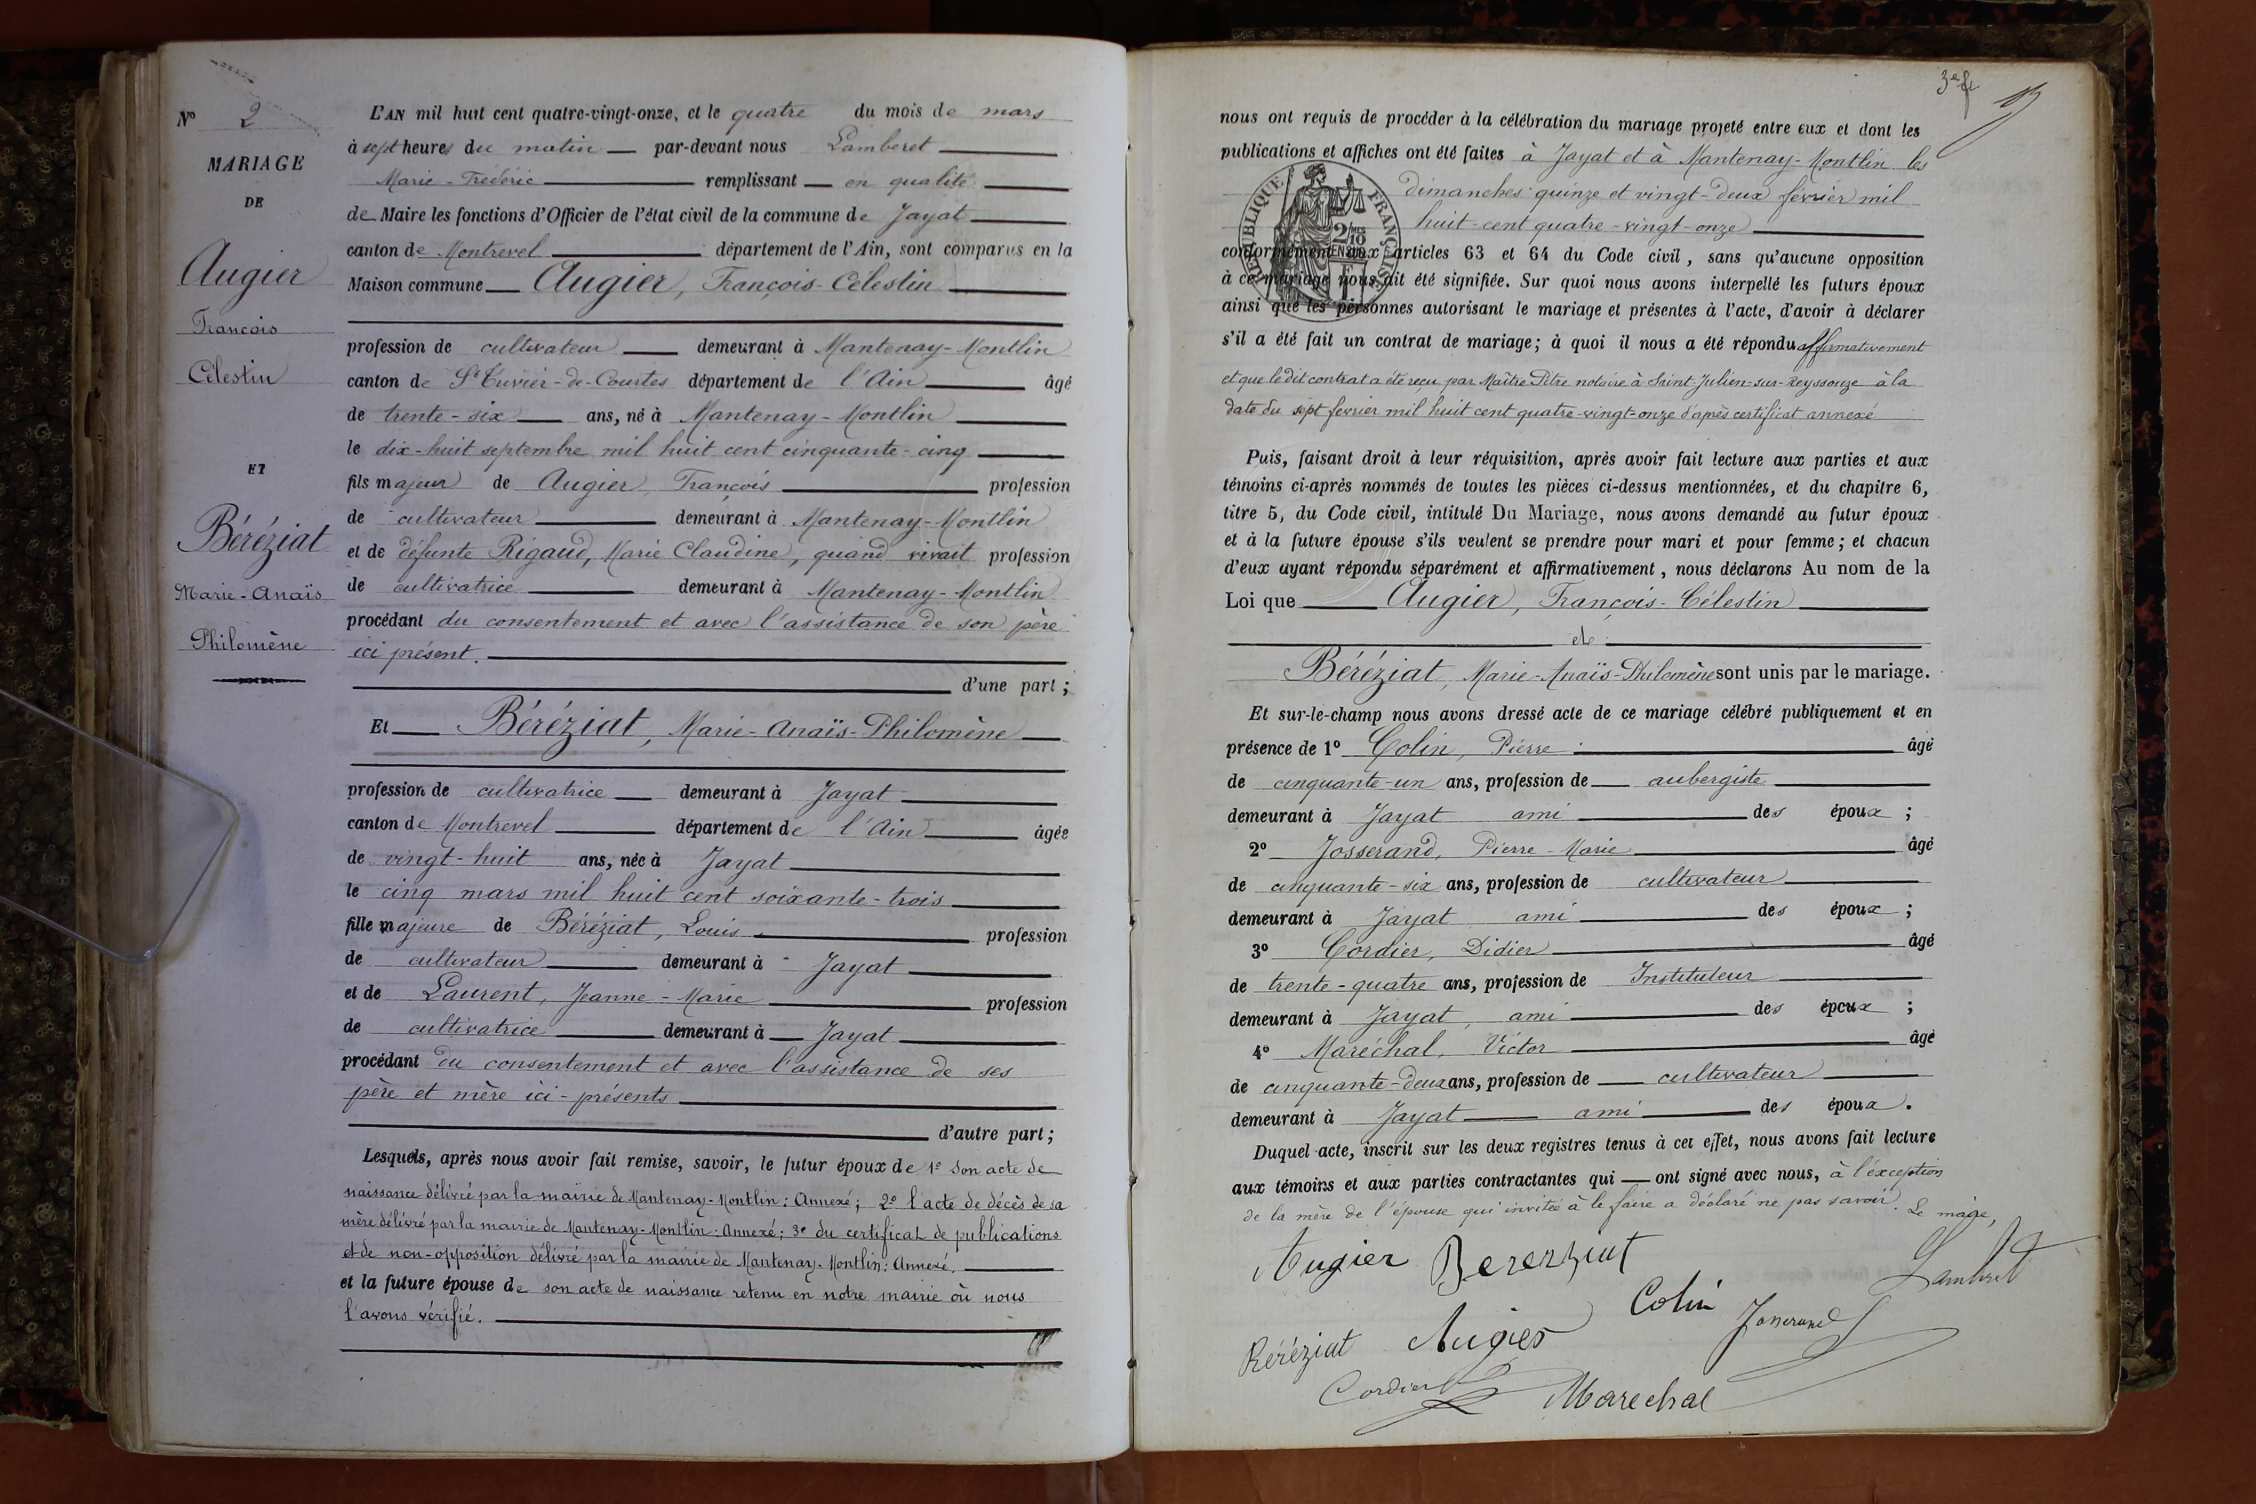 N° 2
MARIAGE
DE
Augier
François
Célestin
ET
Béréziat
Marie-Anaïs
Philomène
L'AN mil huit cent quatre-vingt-onze, et le quatre du mois de mars
à sept heures du matin par-devant nous Lamberet
Marie-Frédéric remplissant en qualité
de Maire les fonctions d'Officier de l'état civil de la commune de Jayat
canton de Montrevel département de l'Ain, sont comparus en la
Maison commune Augier, François-Célestin
profession de cultivateur demeurant à Mantenay-Montlin
canton de St Trivier-de-Courtes département de l'Ain âgé
de trente-six ans, né à Mantenay-Montlin
le dix-huit septembre mil huit cent cinquante-cinq
fils majeur de Augier, François profession
de cultivateur demeurant à Mantenay-Montlin
et de défunte Rigaud, Marie Claudine, quand vivait profession
de cultivatrice demeurant à Mantenay-Montlin
procédant du consentement et avec l'assistance de son père
ici présent.
d'une part;
Et Béréziat, Marie-Anaïs-Philomène
profession de cultivatrice demeurant à Jayat
canton de Montrevel département de l'Ain âgée
de vingt-huit ans, née à Jayat
le cinq mars mil huit cent soixante-trois
fille majeure de Béréziat, Louis profession
de cultivateur demeurant à Jayat
et de Laurent, Jeanne-Marie profession
de cultivatrice demeurant à Jayat
procédant du consentement et avec l'assistance de ses
père et mère ici-présents
d'autre part;
Lesquels, après nous avoir fait remise, savoir, le futur époux de 1° son acte de
naissance délivré par la mairie de Mantenay-Montlin: Annexé; 2° l'acte de décès de sa
mère délivré par la mairie de Mantenay-Montlin: Annexé; 3° du certificat de publications
et de non-opposition délivré par la mairie de Mantenay-Montlin: Annexé.
et la future épouse de son acte de naissance retenu en notre mairie où nous
l'avons vérifié.
3e f
nous ont requis de procéder à la célébration du mariage projeté entre eux et dont les
publications et affiches ont été faites à Jayat et à Mantenay-Montlin les
dimanches quinze et vingt-deux février mil
huit-cent quatre-vingt-onze
RÉPUBLIQUE FRANÇAISE
conformément aux articles 63 et 64 du Code civil, sans qu'aucune opposition
à ce mariage nous ait été signifiée. Sur quoi nous avons interpellé les futurs époux
ainsi que les personnes autorisant le mariage et présentes à l'acte, d'avoir à déclarer
s'il a été fait un contrat de mariage; à quoi il nous a été répondu affirmativement
et que le dit contrat a été reçu par Maître Pitre notaire à Saint-Julien-sur-Reyssouze à la
date du sept fevrier mil huit cent quatre-vingt-onze d'après certificat annexé
Puis, faisant droit à leur réquisition, après avoir fait lecture aux parties et aux
témoins ci-après nommés de toutes les pièces ci-dessus mentionnées, et du chapitre 6,
titre 5, du Code civil, intitulé Du Mariage, nous avons demandé au futur époux
et à la future épouse s'ils veulent se prendre pour mari et pour femme; et chacun
d'eux ayant répondu séparément et affirmativement, nous déclarons Au nom de la
Loi que Augier, François-Célestin
et
Béréziat, Marie-Anaïs-Philomène sont unis par le mariage.
Et sur-le-champ nous avons dressé acte de ce mariage célébré publiquement et en
présence de 1° Colin, Pierre âgé
de cinquante-un ans, profession de aubergiste
demeurant à Jayat ami des époux;
2° Josserand, Pierre-Marie âgé
de cinquante-six ans, profession de cultivateur
demeurant à Jayat ami des époux;
3° Cordier, Didier âgé
de trente-quatre ans, profession de Instituteur
demeurant à Jayat, ami des époux;
4° Maréchal, Victor âgé
de cinquante-deux ans, profession de cultivateur
demeurant à Jayat ami des époux.
Duquel acte, inscrit sur les deux registres tenus à cet effet, nous avons fait lecture
aux témoins et aux parties contractantes qui ont signé avec nous, à l'éxception
de la mère de l'épouse qui invitée à le faire a déclaré ne pas savoir. Le maire,
Augier Bereziat Lamberet
Colin Josserand
Béréziat Augier
Cordier Marechal